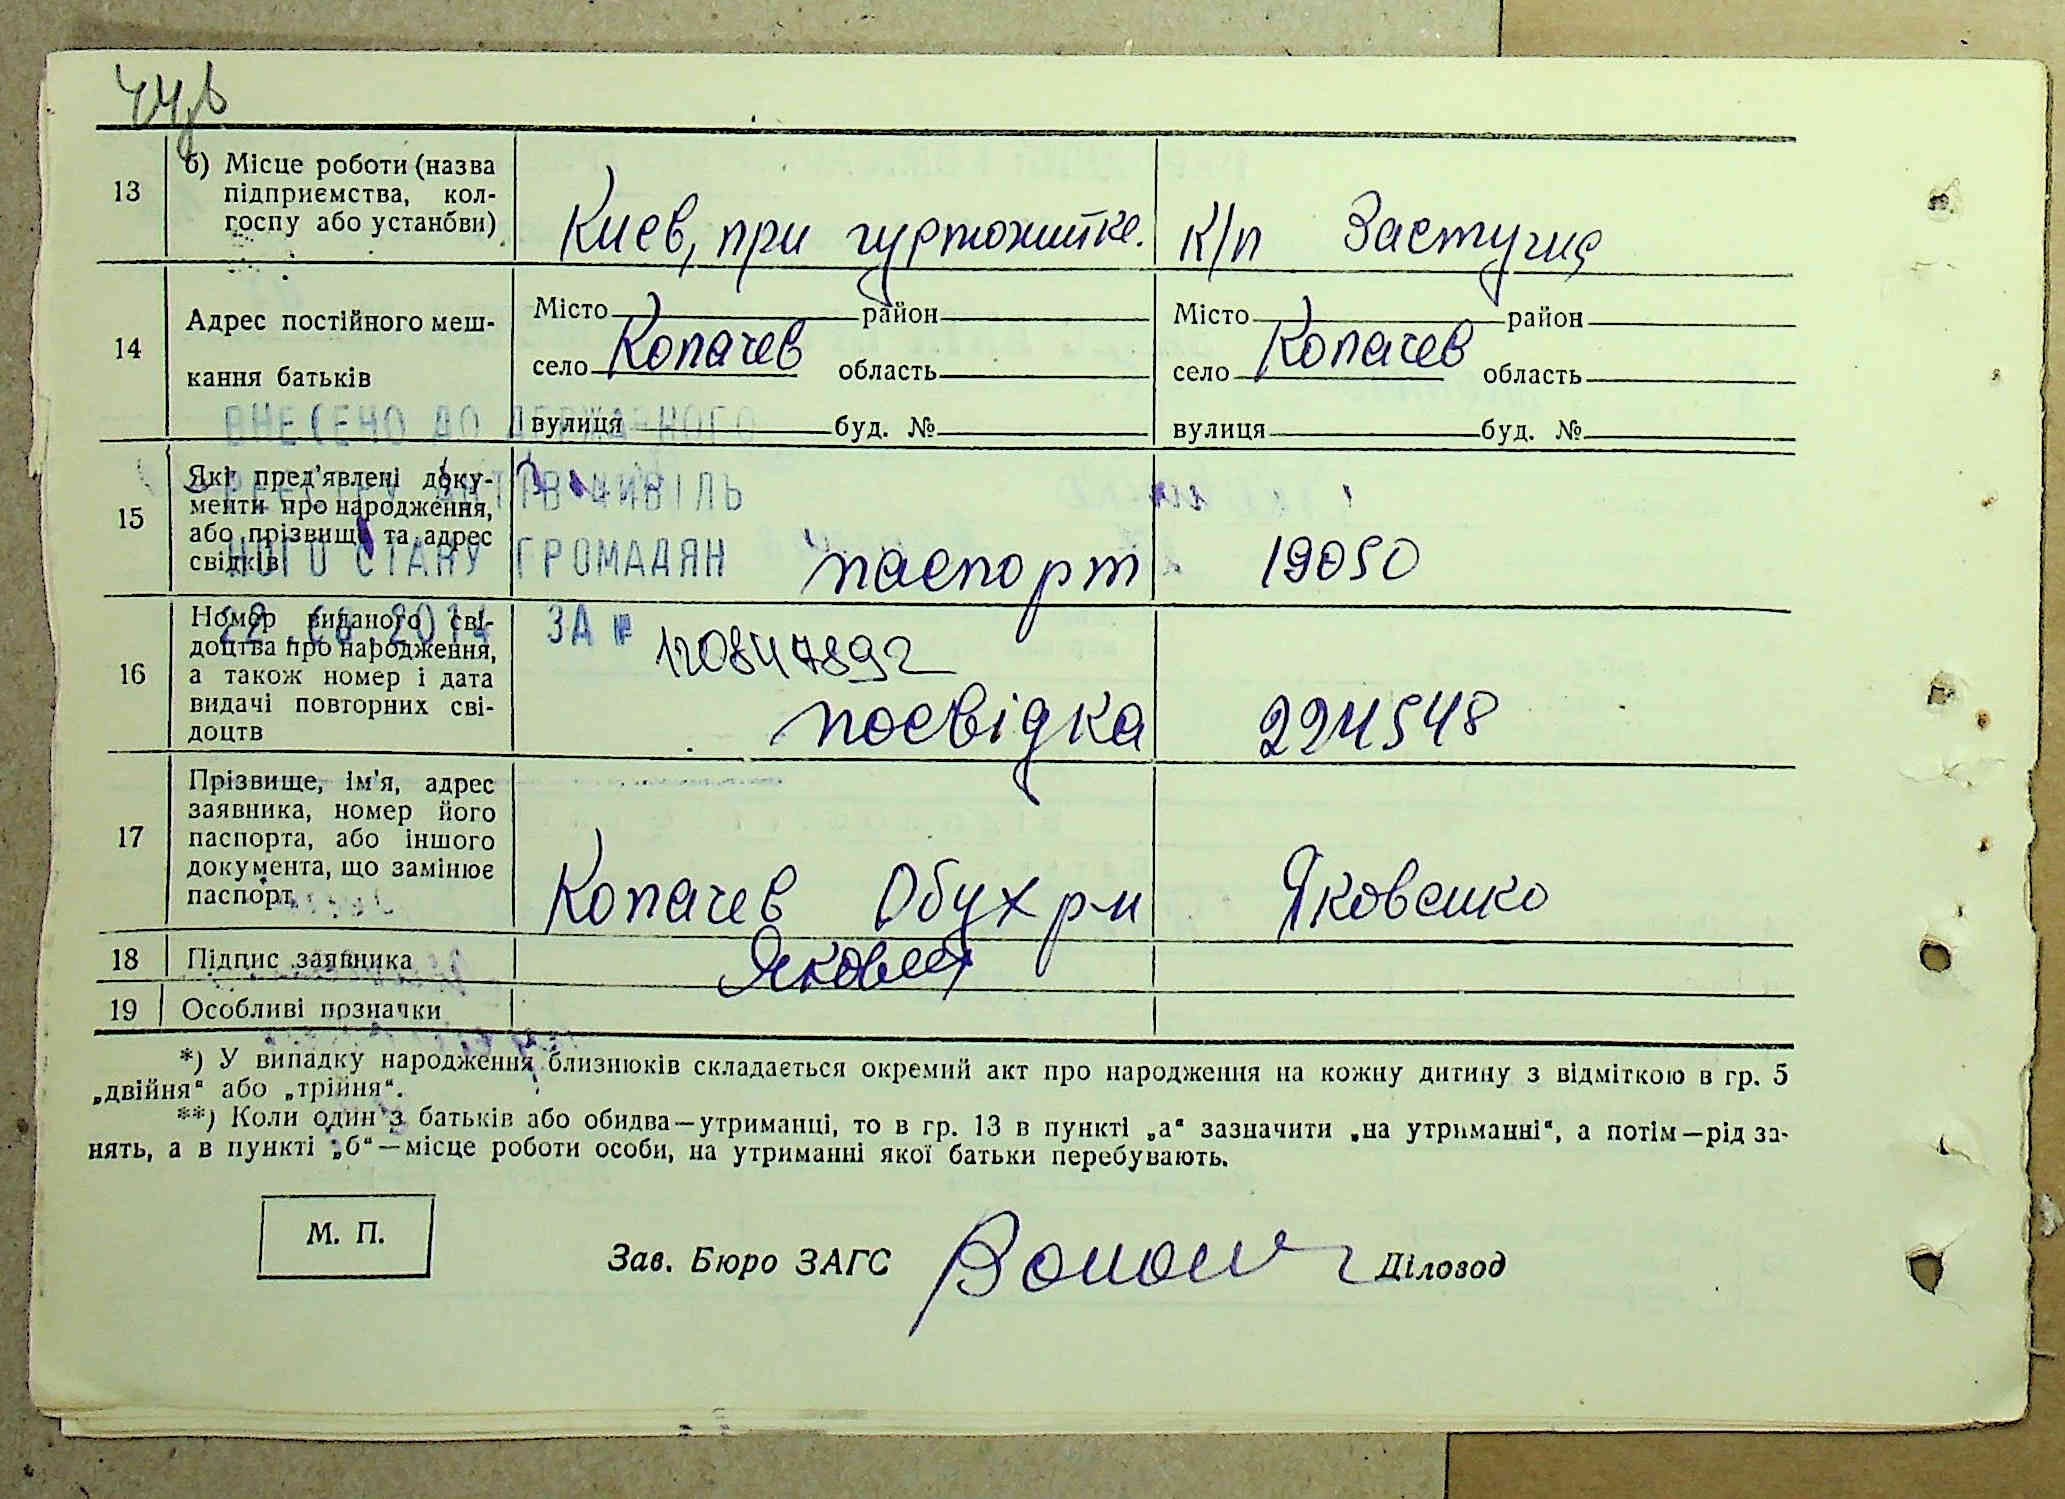 13 б) Місце роботи (назва підприємства, колгоспу або установи) Киев, при гуртожитке. к/п Застугна
14 Адрес постійного мешкання батьків
Місто район Місто район
село Копачев область село Копачев область
вулиця буд. № вулиця буд. №
ВНЕСЕНО ДО ДЕРЖАВНОГО
РЕЄСТРУ АКТІВ ЦИВІЛЬ
НОГО СТАНУ ГРОМАДЯН
ЗА №
15 Які пред'явлені документи про народження, або прізвища та адрес свідків паспорт 19050
16 Номер виданого свідоцтва про народження, а також номер і дата видачі повторних свідоцтв посвідка
17 Прізвище, ім'я, адрес заявника, номер його паспорта, або іншого документа, що замінює паспорт Копачев Обух р-н Яковенко
18 Підпис заявника
19 Особливі позначки
*) У випадку народження близнюків складається окремий акт про народження на кожну дитину з відміткою в гр. 5
„двійня“ або „трійня“.
**) Коли один з батьків або обидва—утриманці, то в гр. 13 в пункті „а“ зазначити „на утриманні“, а потім—рід за-
нять, а в пункті „б“—місце роботи особи, на утриманні якої батьки перебувають.
М. П.
Зав. Бюро ЗАГС Діловод